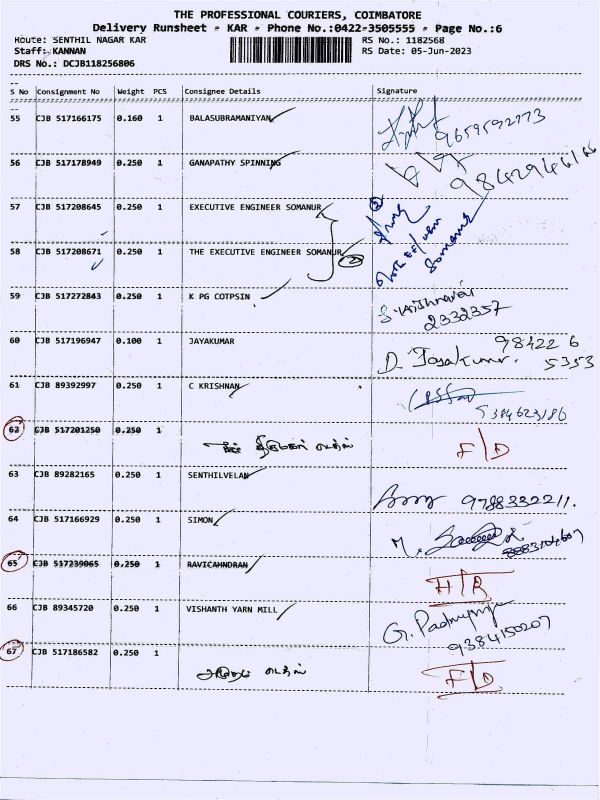 THE PROFESSIONAL COURIERS, COIMBATORE
Delivery Runsheet - KAR - Phone No.:0422-3505555 - Page No.:6
Route: SENTHIL NAGAR KAR RS No.: 1182568
Staff: KANNAN RS Date: 05-Jun-2023
DRS No.: DCJB118256806
S No Consignment No Weight PCS Consignee Details Signature
55 CJB 517166175 0.160 1 BALASUBRAMANIYAN 9659592773
56 CJB 517178949 0.250 1 GANAPATHY SPINNING
57 CJB 517208645 0.250 1 EXECUTIVE ENGINEER SOMANUR
58 CJB 517208671 0.250 1 THE EXECUTIVE ENGINEER SOMANUR
59 CJB 517272843 0.250 1 K PG COTPSIN 2332357
60 CJB 517196947 0.100 1 JAYAKUMAR 98422 6
5353
61 CJB 89392997 0.250 1 C KRISHNAN
62 CJB 517201250 0.250 1 F/D
63 CJB 89282165 0.250 1 SENTHILVELAN 9788332211.
64 CJB 517166929 0.250 1 SIMON
65 CJB 517239065 0.250 1 RAVICAHNDRAN H/R
66 CJB 89345720 0.250 1 VISHANTH YARN MILL 9384150207
67 CJB 517186582 0.250 1 F/D